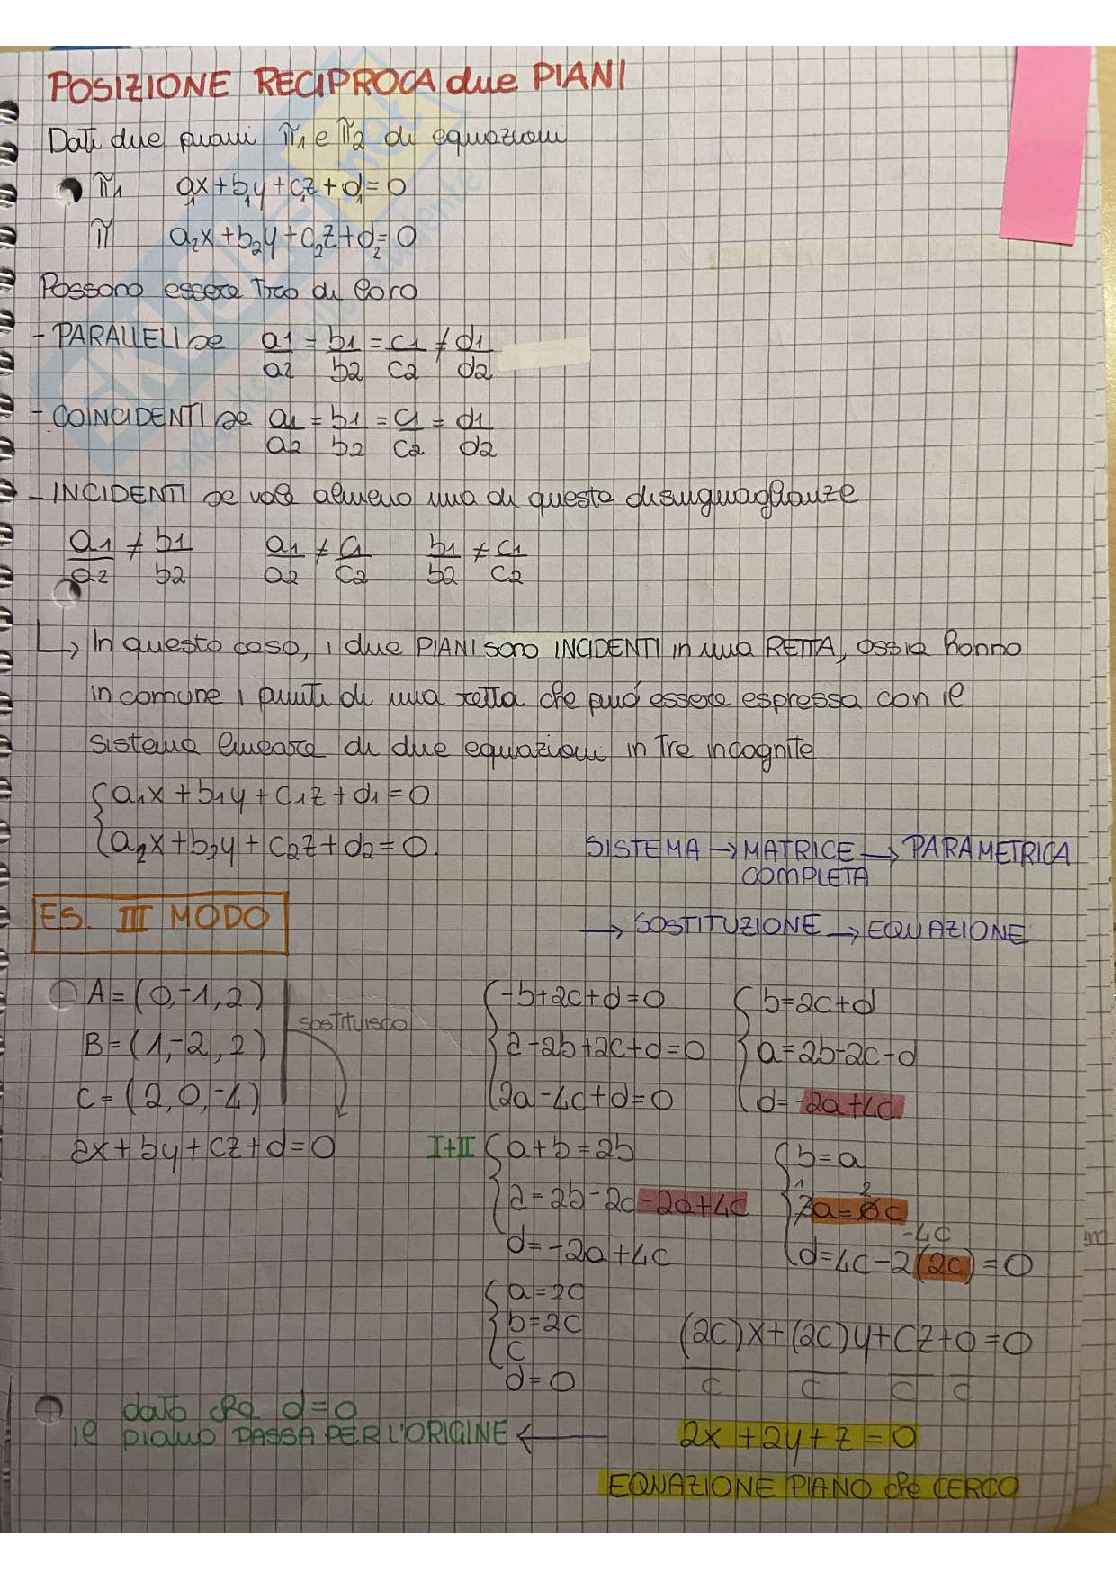 POSIZIONE RECIPROCA due PIANI
Dati due piani π1 e π2 di equazioni
π1 a1x+b1y+c1z+d1=0
π a2x+b2y+c2z+d2=0
Possono essere tra di loro
- PARALLELI se a1/a2 = b1/b2 = c1/c2 ≠ d1/d2
- COINCIDENTI se a1/a2 = b1/b2 = c1/c2 = d1/d2
- INCIDENTI se vale almeno una di queste disuguaglianze
a1/a2 ≠ b1/b2 a1/a2 ≠ c1/c2 b1/b2 ≠ c1/c2
↳ In questo caso, i due PIANI sono INCIDENTI in una RETTA, ossia hanno
in comune i punti di una retta che può essere espressa con il
sistema lineare di due equazioni in tre incognite
{a1x+b1y+c1z+d1=0
{a2x+b2y+c2z+d2=0
SISTEMA → MATRICE COMPLETA → PARAMETRICA
→ SOSTITUZIONE → EQUAZIONE
ES. III MODO
A=(0,-1,2)
B=(1,-2,2)
C=(2,0,-4)
sostituisco
ax+by+cz+d=0
{-b+2c+d=0
{a-2b+2c+d=0
{2a-4c+d=0
{b=2c+d
{a=2b-2c-d
{d=-2a+4c
I+II {a+b=2b
{a=2b-2c-2a+4c
{d=-2a+4c
{b=a
{3a=6c 1 2
{d=4c-2(2c)=0 -4c
{a=2c
{b=2c
{c
{d=0
(2c)x+(2c)y+cz+0=0
c c c c
2x+2y+z=0
EQUAZIONE PIANO che CERCO
dato che d=0
il piano PASSA PER L'ORIGINE ←